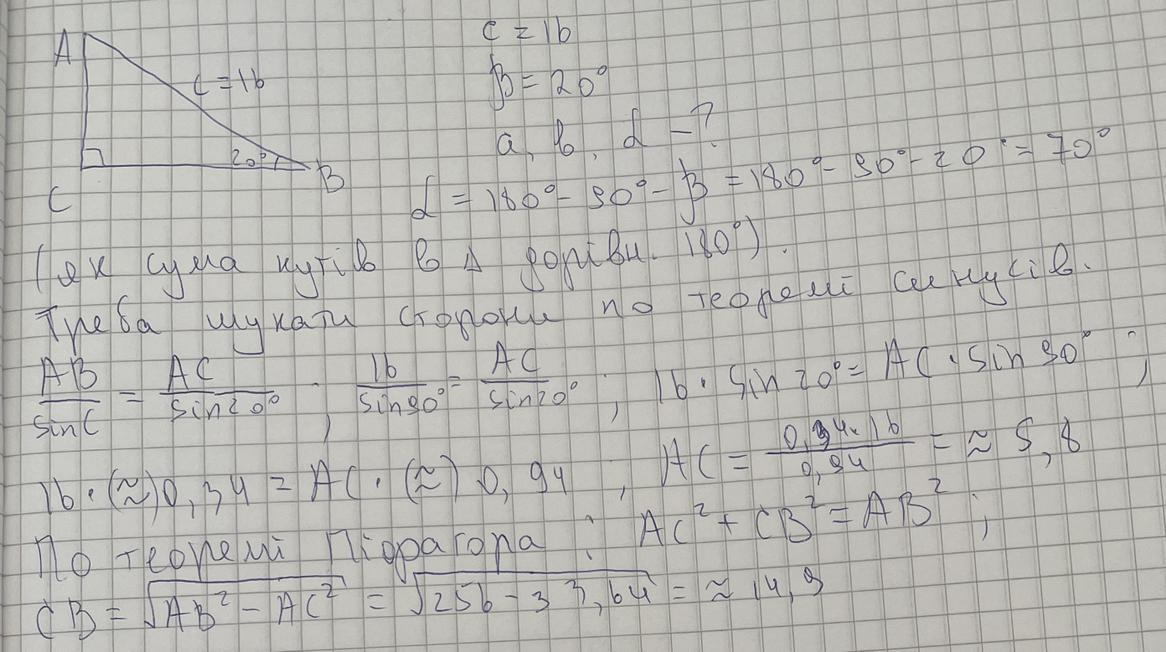 A
c = 16
20°
B
C
c = 16
β = 20°
a, b, α - ?
α = 180° - 90° - β = 180° - 90° - 20° = 70°
(як сума кутів в Δ дорівн. 180°).
Треба шукати сторони по теоремі синусів.
AB/sin C = AC/sin 20° ; 16/sin 90° = AC/sin 20° ; 16 · sin 20° = AC · sin 90° ;
16 · (≈) 0,34 = AC · (≈) 0,94 ; AC = 0,34 · 16/0,94 = ≈ 5,8
По теоремі Піфагора : AC² + CB² = AB² ;
CB = √AB² - AC² = √256 - 33,64 = ≈ 14,9